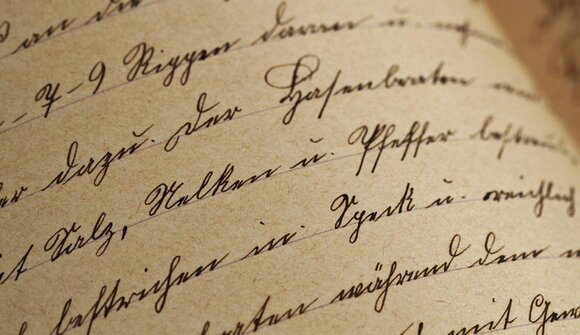 an die
7-9 Rippen daran u.
dazu. Der Hasenbraten
Salz, Nelken u. Pfeffer bestreut
bestrichen in. Speck u. reichlich
während dem
mit Gew